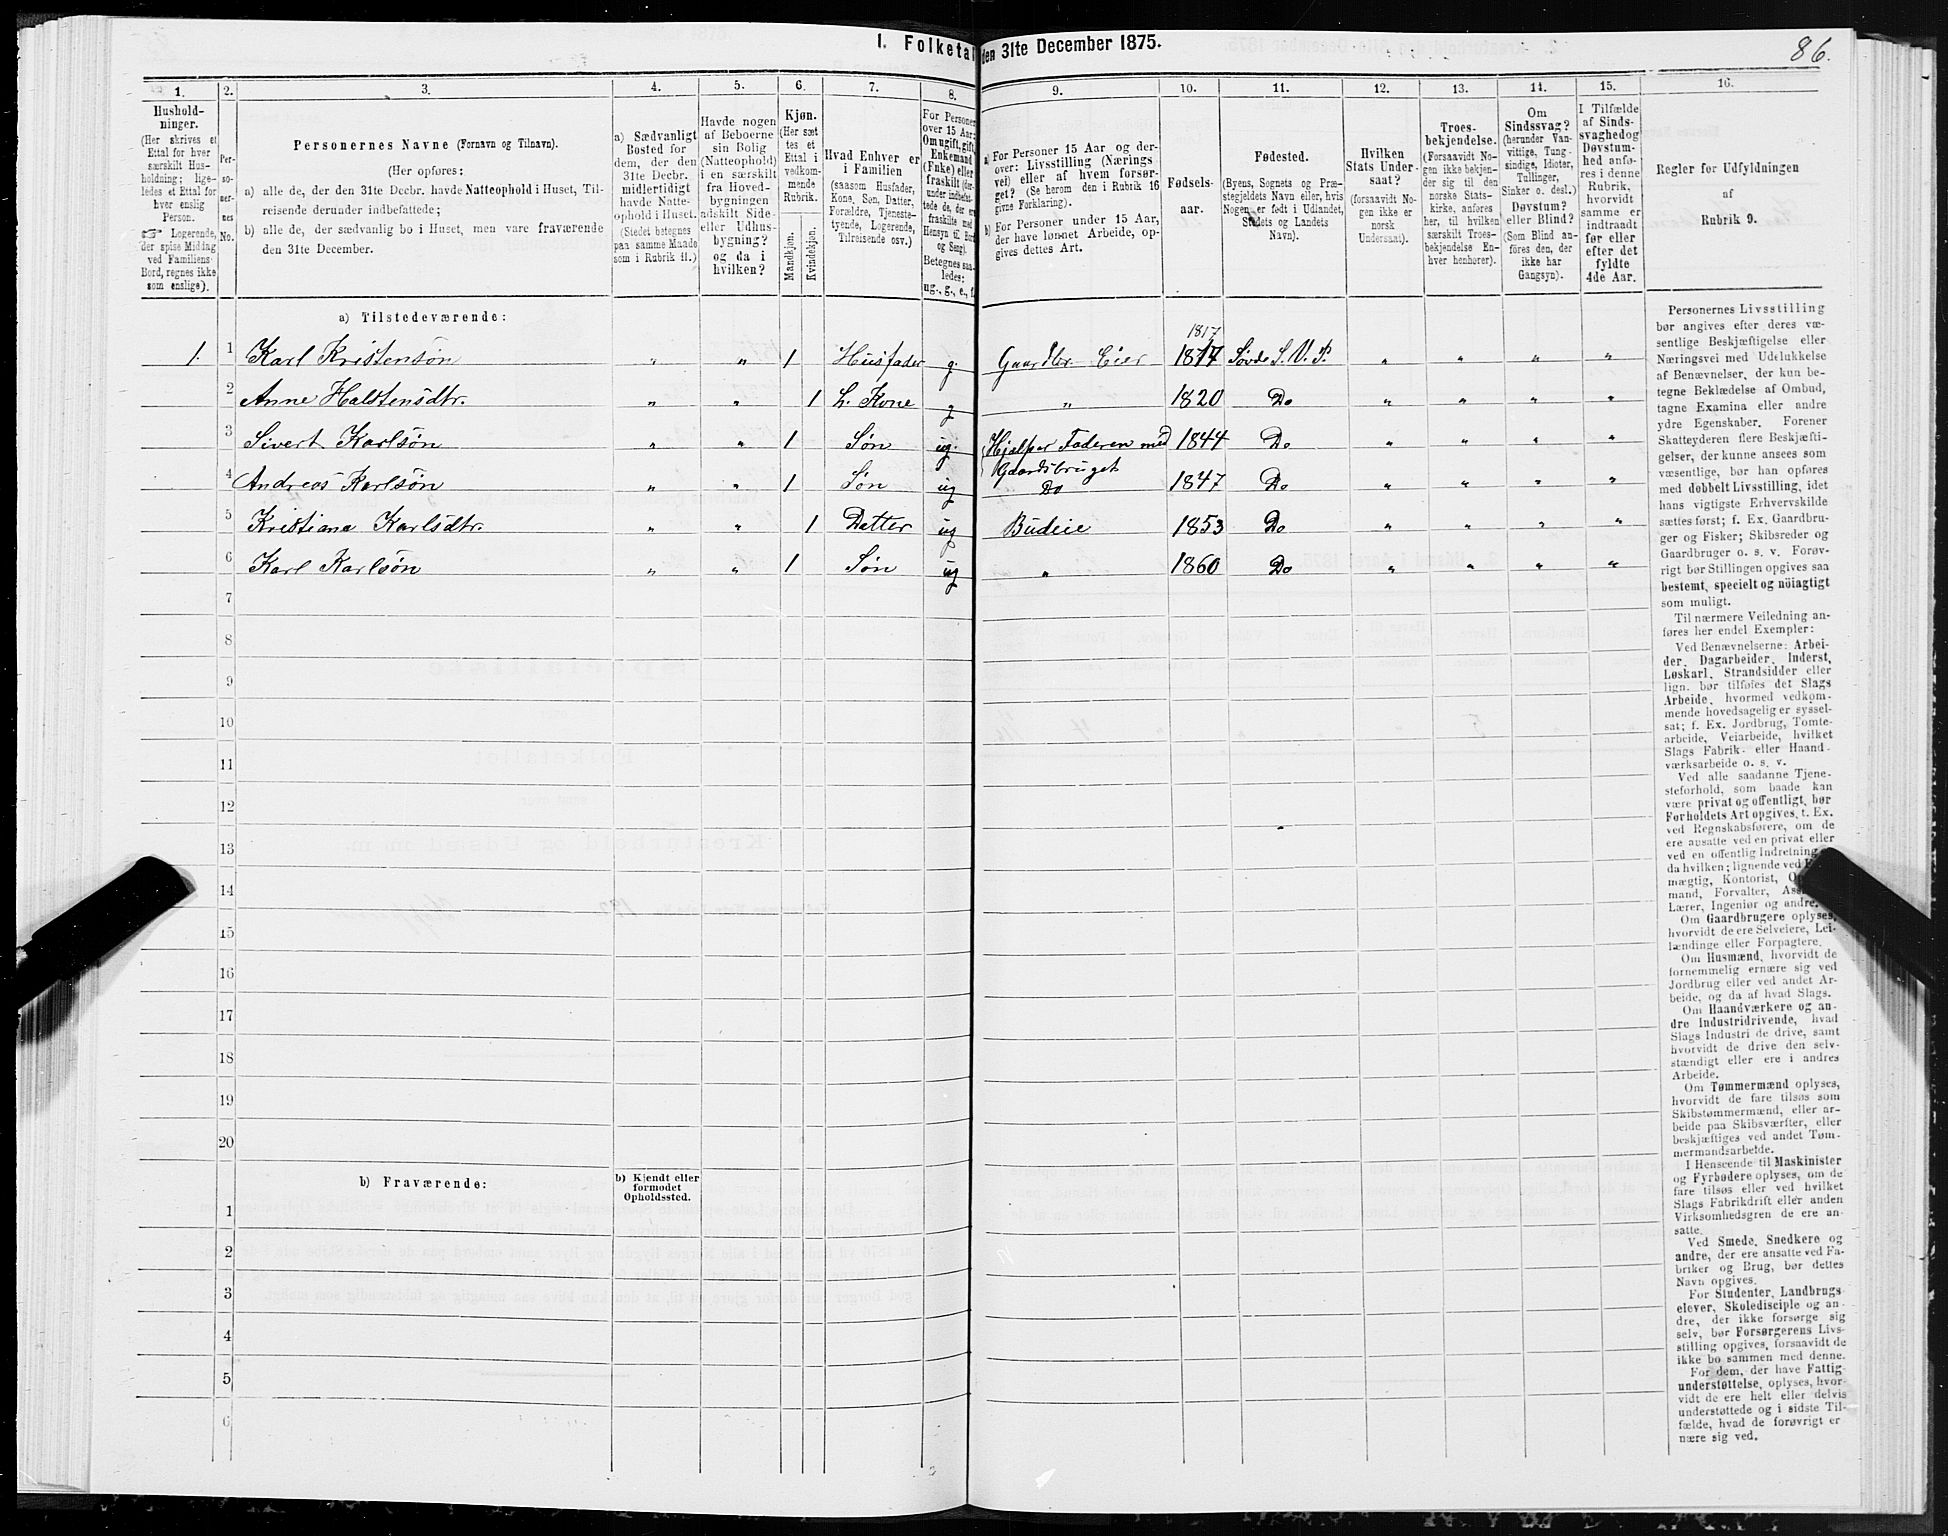 I. Folketal
den 31te December 1875.
86.
1.
2.
3.
4.
5.
6.
7.
8.
9.
10.
11.
12.
13.
14.
15.
16.
Hushold-
ninger.
(Her skrives et
Ettal for hver
særskilt Hus-
holdning; lige-
ledes et Ettal for
hver enslig
Person.
☞ Logerende,
der spise Middag
ved Familiens
Bord, regnes ikke
som enslige).
Per-
so-
ner-
nes
No.
Personernes Navne (Fornavn og Tilnavn).
(Her opføres:
a) alle de, der den 31te Decbr. havde Natteophold i Huset, Til-
reisende derunder indbefattede;
b) alle de, der sædvanlig bo i Huset, men vare fraværende
den 31te December.
a) Sædvanligt
Bosted for
dem, der den
31te Decbr.
midlertidigt
havde Natte-
ophold i Huset.
(Stedet betegnes
paa samme Maade
som i Rubrik 11.)
Havde nogen
af Beboerne
sin Bolig
(Natteophold)
i en særskilt
fra Hoved-
bygningen
adskilt Side-
eller Udhus-
bygning?
og da i
hvilken?
Kjøn.
(Her sæt-
tes et
Ettal i
vedkom-
mende
Rubrik.
Mandkjøn.
Kvindekjøn.
Hvad Enhver er
i Familien
(saasom Husfader,
Kone, Søn, Datter,
Forældre, Tjeneste-
tyende, Logerende,
Tilreisende osv.)
For Personer
over 15 Aar:
Om ugift, gift,
Enkemand
(Enke) eller
fraskilt (der-
under indbefat-
tede de, der ere
fraskilte med
Hensyn til Bord
og Seng).
Betegnes saa-
ledes:
ug., g., e., f.
a) For Personer 15 Aar og der-
over: Livsstilling (Nærings
vei) eller af hvem forsør-
get? (Se herom den i Rubrik 16
givne Forklaring).
b) For Personer under 15 Aar,
der have lønnet Arbeide, op-
gives dettes Art.
Fødsels-
aar.
Fødested.
(Byens, Sognets og Præ-
stegjeldets Navn eller, hvis
Nogen er født i Udlandet,
Stedets og Landets
Navn).
Hvilken
Stats Under-
saat?
(forsaavidt No-
gen ikke er
norsk
Undersaat).
Troes-
bekjendelse.
(Forsaavidt No-
gen ikke bekjen-
der sig til den
norske Stats-
kirke, anføres
her, til hvilken
særskilt Troes-
bekjendelse En-
hver henhører).
Om
Sindssvag?
(herunder Van-
vittige, Tung-
sindige, Idioter,
Tullinger,
Sinker o. desl.)
Døvstum?
eller Blind?
(Som Blind an-
føres den, der
ikke har
Gangsyn).
I Tilfælde
af Sinds-
svaghed og
Døvstum-
hed anfø-
res i denne
Rubrik,
hvorvidt
samme er
indtraadt
før eller
efter det
fyldte
4de Aar.
Regler for Udfyldningen
af
Rubrik 9.
a) Tilstedeværende:
1817
1. 1 Karl Kristensøn " " 1 Husfader g. Gaardbr. Eier 1817 Søvde S. V. P. " " " "
2 Anne Halstensdtr. " " 1 h. Kone g " 1820 Do " " " "
3 Sivert Karlsøn " " 1 Søn ug. Hjælper Faderen med 1844 Do " " " "
Gaardsbruget
4 Andreas Karlsøn " " 1 Søn ug Do 1847 Do " " " "
5 Kristiana Karlsdtr. " " 1 Datter ug Budeie 1853 Do " " " "
6 Karl Karlsøn " " 1 Søn ug " 1860 Do " " " "
7
8
9
10
11
12
13
14
15
16
17
18
19
20
b) Fraværende:
b) Kjendt eller
formodet
Opholdssted.
1
2
3
4
5
6
Personernes Livsstilling
bør angives efter deres væ-
sentlige Beskjæftigelse eller
Næringsvei med Udelukkelse
af Benævnelser, der kun be-
tegne Beklædelse af Ombud,
tagne Examina eller andre
ydre Egenskaber. Forener
Skatteyderen flere Beskjæfti-
gelser, der kunne ansees som
væsentlige, bør han opføres
med dobbelt Livsstilling, idet
hans vigtigste Erhvervskilde
sættes først; f. Ex. Gaardbru-
ger og Fisker; Skibsreder og
Gaardbruger o. s. v. Forøv-
rigt bør Stillingen opgives saa
bestemt, specielt og nöiagtigt
som muligt.
Til nærmere Veiledning an-
føres her endel Exempler:
Ved Benævnelserne: Arbei-
der, Dagarbeider, Inderst,
Løskarl, Strandsidder eller
lign. bør tilføies det Slags
Arbeide, hvormed vedkom-
mende hovedsagelig er syssel-
sat; f. Ex. Jordbrug, Tomte-
arbeide, Veiarbeide, hvilket
Slags Fabrik- eller Haand-
værksarbeide o. s. v.
Ved alle saadanne Tjene-
steforhold, som baade kan
være privat og offentligt, bør
Forholdets Art opgives, t. Ex.
ved Regnskabsførere, om de
ere ansatte ved en privat eller
ved en offentlig Indretning og
da hvilken; lignende ved
mægtig, Kontorist,
mand, Forvalter,
Lærer, Ingeniør og andre.
Om Gaardbrugere oplyses,
hvorvidt de ere Selveiere, Lei-
lændinge eller Forpagtere.
Om Husmænd, hvorvidt de
fornemmelig ernære sig ved
Jordbrug eller ved andet Ar-
beide, og da af hvad Slags.
Om Haandværkere og an-
dre Industridrivende, hvad
Slags Industri de drive, samt
hvorvidt de drive den selv-
stændigt eller ere i andres
Arbeide.
Om Tømmermænd oplyses,
hvorvidt de fare tilsøs som
Skibstømmermænd, eller ar-
beide paa Skibsværfter, eller
beskjæftiges ved andet Tøm-
mermandsarbeide.
I Henseende til Maskinister
og Fyrbødere oplyses, om de
fare tilsøs eller ved hvilket
Slags Fabrikdrift eller anden
Virksomhedsgren de ere an-
satte.
Ved Smede, Snedkere og
andre, der ere ansatte ved Fa-
briker og Brug, bør dettes
Navn opgives.
For Studenter, Landbrugs-
elever, Skoledisciple og an-
dre, der ikke forsørge sig
selv, bør Forsørgerens Livs-
stilling opgives, forsaavidt de
ikke bo sammen med denne.
For dem, der have Fattig-
understøttelse, oplyses, hvor-
vidt de ere helt eller delvis
understøttede og i sidste Til-
fælde, hvad de forøvrigt er
nære sig ved.